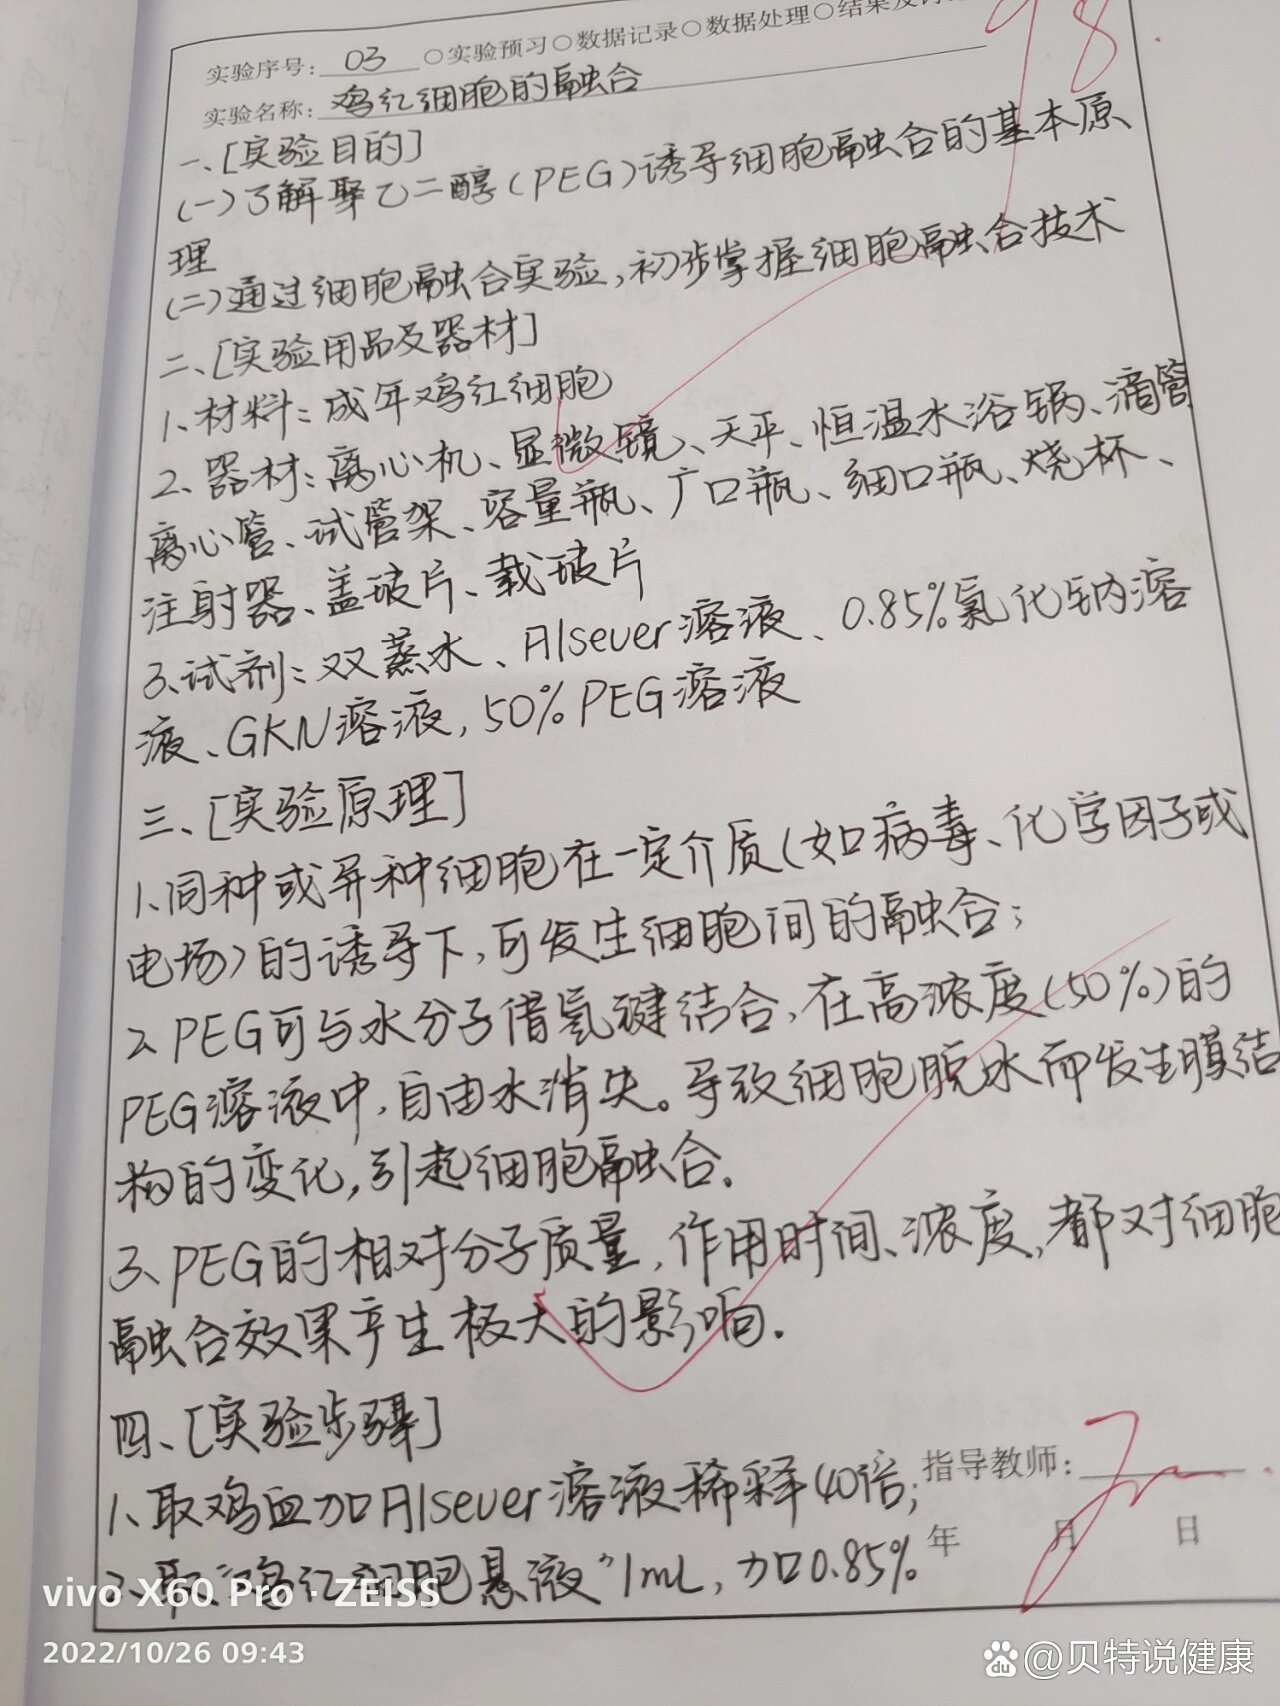 实验序号: 03 ○实验预习○数据记录○数据处理○结果及讨论
98.
实验名称: 鸡红细胞的融合
一、[实验目的]
(一)了解聚乙二醇(PEG)诱导细胞融合的基本原
理
(二)通过细胞融合实验,初步掌握细胞融合技术
二、[实验用品及器材]
1、材料:成年鸡红细胞
2、器材:离心机、显微镜、天平、恒温水浴锅、滴管
离心管、试管架、容量瓶、广口瓶、细口瓶、烧杯、
注射器、盖玻片、载玻片
3、试剂:双蒸水、Alsever溶液、0.85%氯化钠溶
液、GKN溶液,50%PEG溶液
三、[实验原理]
1、同种或异种细胞在一定介质(如病毒、化学因子或
电场)的诱导下,可发生细胞间的融合;
2、PEG可与水分子借氢键结合,在高浓度(50%)的
PEG溶液中,自由水消失。导致细胞脱水而发生膜结
构的变化,引起细胞融合.
3、PEG的相对分子质量,作用时间、浓度,都对细胞
融合效果产生极大的影响.
四、[实验步骤]
1、取鸡血加Alsever溶液稀释40倍;
指导教师:
2、取"鸡红细胞悬液"1mL,加0.85%
年 月 日
vivo X60 Pro · ZEISS
2022/10/26 09:43
du @贝特说健康